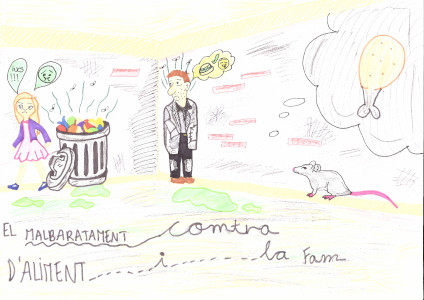 EL MALBARATAMENT comtra
D'ALIMENT i la Fam